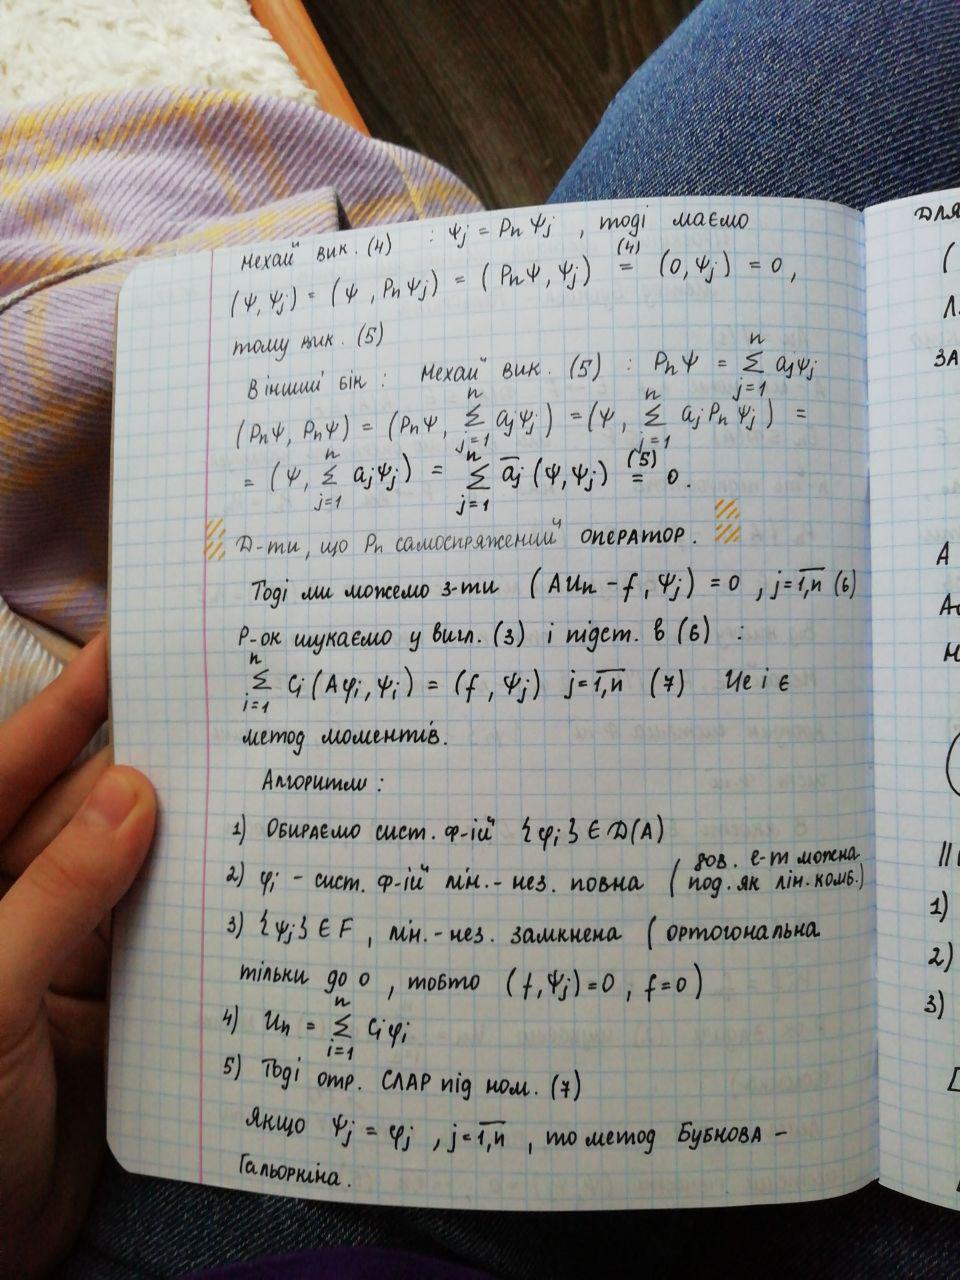 Нехай вик. (4) : Ψj = Pn Ψj , тоді маємо
(Ψ, Ψj) = (Ψ , Pn Ψj) = (Pn Ψ, Ψj) (4)= (0, Ψj) = 0 ,
тому вик. (5)
В інший бік : Нехай вик. (5) : Pn Ψ = Σ_{j=1}^{n} aj Ψj
(Pn Ψ, Pn Ψ) = (Pn Ψ, Σ_{j=1}^{n} aj Ψj) = (Ψ, Σ_{j=1}^{n} aj Pn Ψj) =
= (Ψ, Σ_{j=1}^{n} aj Ψj) = Σ_{j=1}^{n} a̅j (Ψ, Ψj) (5)= 0 .
Д-ти, що Pn самоспряжений оператор.
Тоді ми можемо з-ти (A Un - f, Ψj) = 0 , j = 1,n (6)
Р-ок шукаємо у вигл. (3) і підст. в (6) :
Σ_{i=1}^{n} Ci (Aφi, Ψi) = (f, Ψj) j = 1,n (7) Це і є
метод моментів.
Алгоритм :
1) Обираємо сист. ф-ій {φi} Є D(A)
2) φi - сист. ф-ій лін. - нез. повна ( дов. е-т можна
под. як лін. комб.)
3) {Ψj} Є F , лін. - нез. замкнена ( ортогональна
тільки до 0 , тобто (f, Ψj) = 0 , f = 0)
4) Un = Σ_{i=1}^{n} Ci φi
5) Тоді отр. СЛАР під ном. (7)
Якщо Ψj = φj , j = 1,n , то метод Бубнова -
Гальоркіна.
ДЛЯ
(
ЗА
А
||
1)
2)
3)